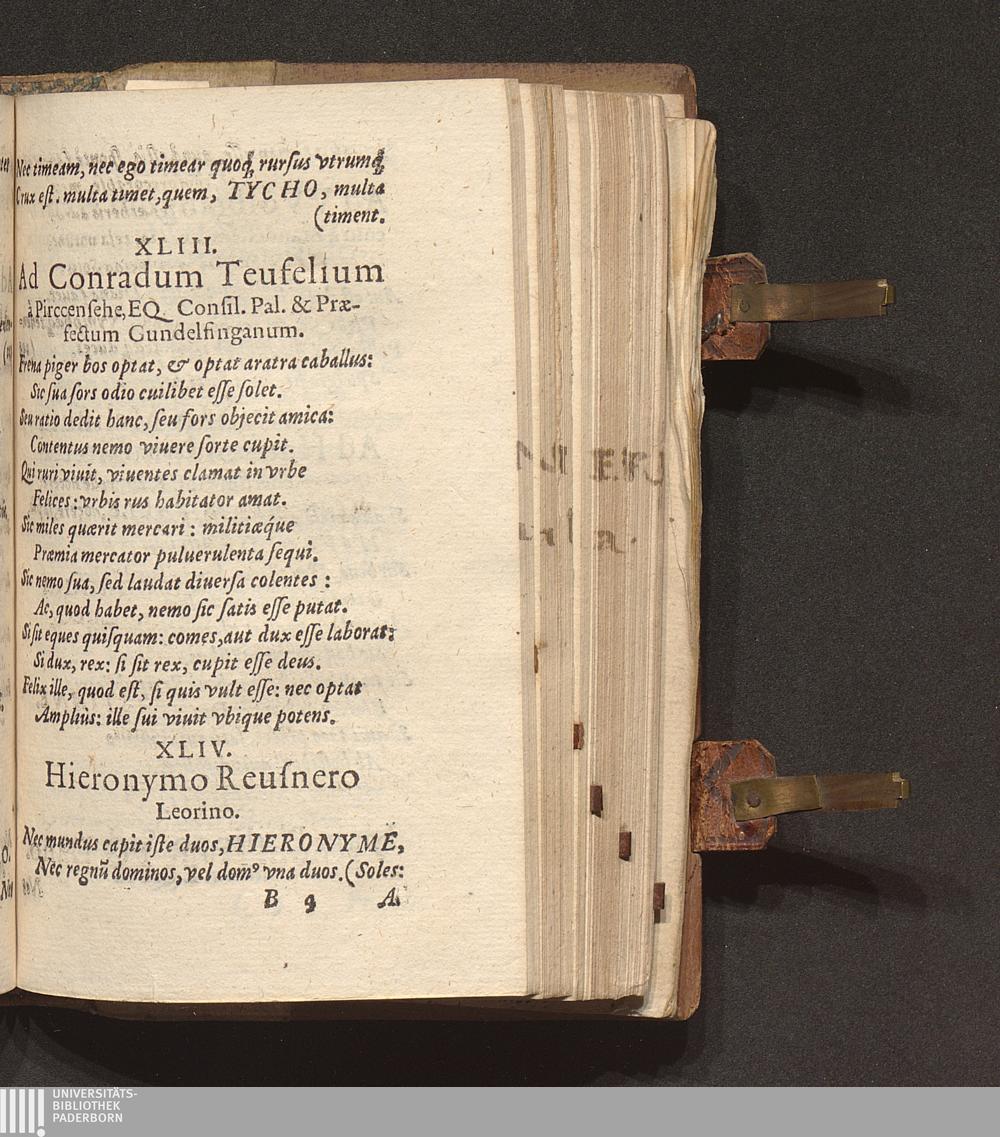 Nec timeam, nec ego timear quoq́, rurſus vtrumq́
Crux eſt. multa timet, quem, TYCHO, multa
(timent.
XLIII.
Ad Conradum Teufelium
à Pirccenſehe, EQ. Conſil. Pal. & Præ-
fectum Gundelfinganum.
Frena piger bos optat, & optat aratra caballus:
Sic ſua ſors odio cuilibet eſſe ſolet.
Seu ratio dedit hanc, ſeu fors objecit amica:
Contentus nemo viuere ſorte cupit.
Qui ruri viuit, viuentes clamat in vrbe
Felices: vrbis rus habitator amat.
Sic miles quærit mercari: militiæq́ue
Præmia mercator puluerulenta ſequi.
Sic nemo ſua, ſed laudat diuerſa colentes:
Ac, quod habet, nemo ſic ſatis eſſe putat.
Si ſit eques quiſquam: comes, aut dux eſſe laborat:
Si dux, rex: ſi ſit rex, cupit eſſe deus.
Felix ille, quod eſt, ſi quis vult eſſe: nec optat
Ampliùs: ille ſui viuit vbique potens.
XLIV.
Hieronymo Reuſnero
Leorino.
Nec mundus capit iſte duos, HIERONYME,
Nec regnū dominos, vel domꝰ vna duos. (Soles:
B 4 A
UNIVERSITÄTS-
BIBLIOTHEK
PADERBORN